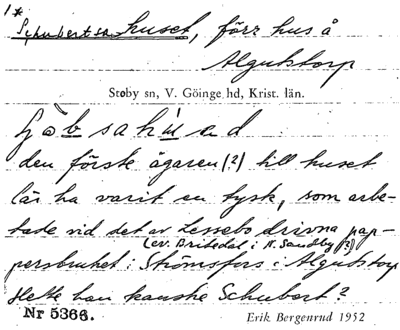 1*
Schubertsa huset, förr hus å
Algutstorp
Stoby sn, V. Göinge hd, Krist. län.
den förste ägaren (?) till huset
lär ha varit en tysk, som arbe-
tade vid det av Lessebo drivna pap-
(ev. Britedal i N. Sandby?)
persbruket i Strömsfors i Algutstorp
Hette han kanske Schubert?
Nr 5366.
Erik Bergenrud 1952